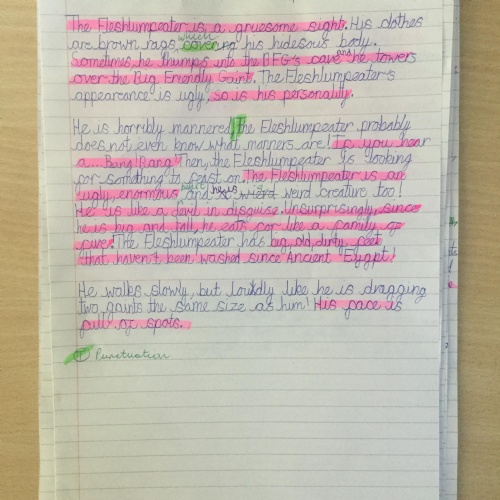 The Fleshlumpeater is a gruesome sight. His clothes
are brown rags, which covering his hideous body.
Sometimes, he thumps into the BFG's cave and he towers
over the Big Friendly Gaint. The Fleshlumpeater's
appearance is ugly, so is his personality.
He is horribly mannered, the Fleshlumpeater probably
does not even know what manners are! If you hear
a... Bang! Bang! Then, the Fleshlumpeater is looking
for something to feast on. The Fleshlumpeater is an
ugly, enormous and he is weird creature too!
He is like a devil in disguise. Unsurprisingly, since
he is big and tall, he eats for like a family of
five! The Fleshlumpeater has big, old, dirty, feet
that haven't been washed since Ancient Eygpt!
He walks slowly, but loudly like he is dragging
two gaints the same size as him! His face is
full of spots.
Punctuation